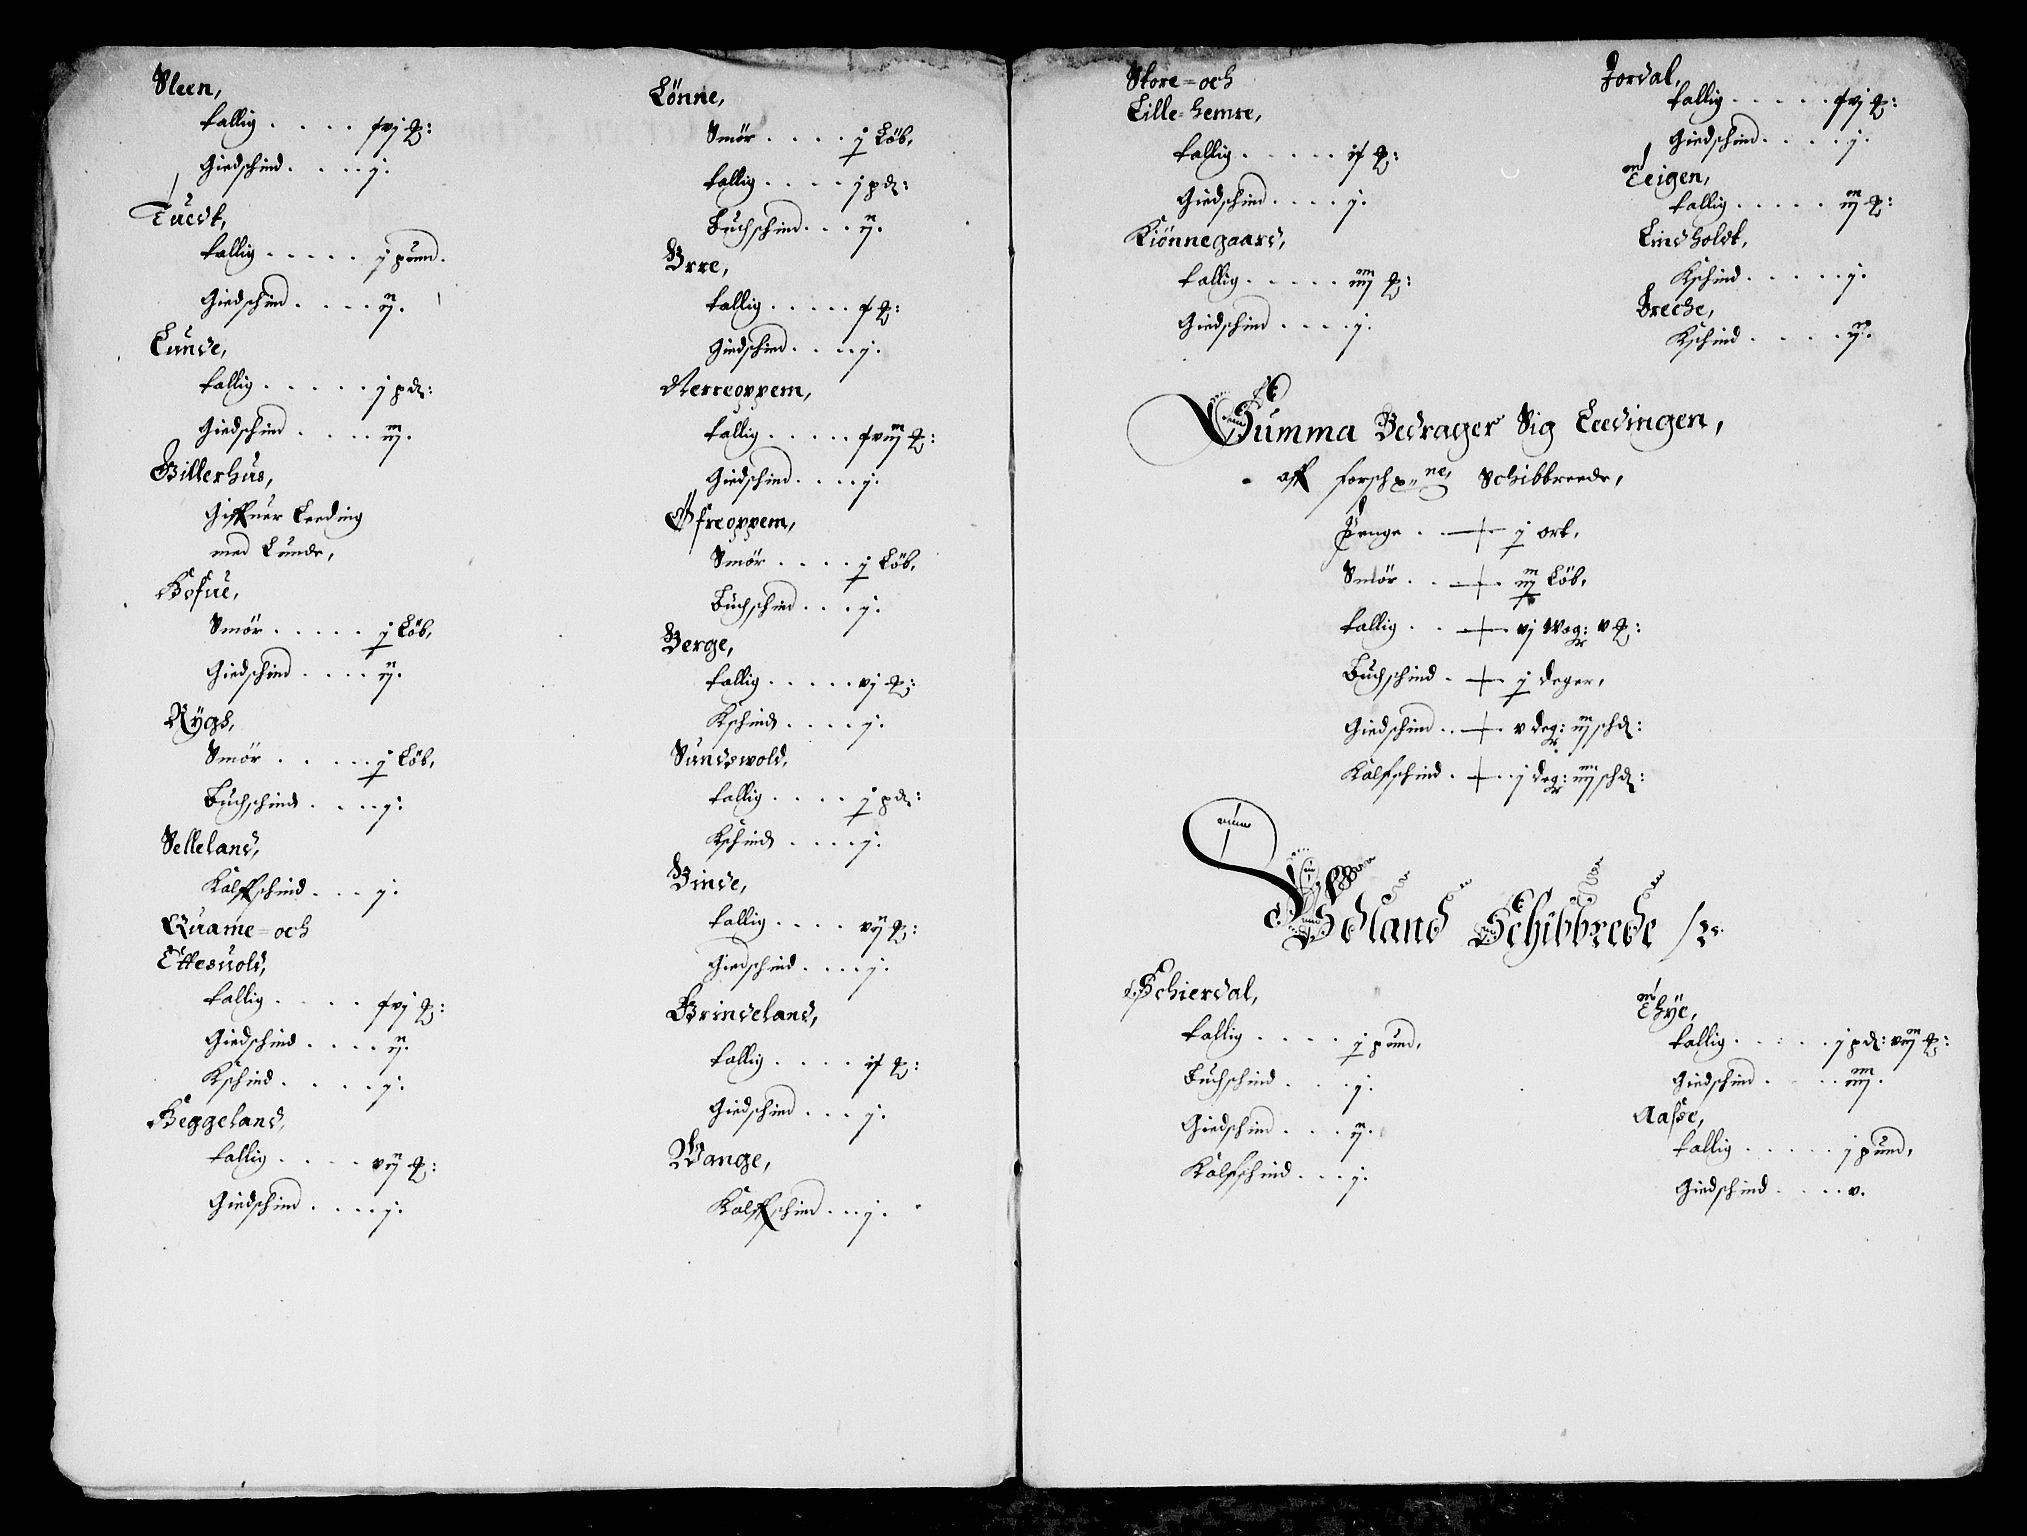 Steen,
tallig . . . . fvj ꝶ:
Giedschind . . . . j.
Tuedt,
tallig . . . . . j pund.
Giedschind . . . . ij.
Lunde,
tallig . . . . . j pd:
Giedschind . . . . iij.
Billerhus,
Giffuer Leeding
med Lunde,
Hofue,
Smör . . . . . j Löb,
Giedschind . . . . ij.
Rygh,
Smör . . . . . j Löb,
Buchschind . . . . j.
Selleland,
Kalffschind . . . j.
Quame=och
Ettesuold,
tallig . . . . fvj ꝶ:
Giedschind . . . . ij.
Kschind . . . . j.
Heggeland,
tallig . . . . vij ꝶ:
Giedschind . . . . j.
Lönne,
Smör . . . . j Löb,
tallig . . . . j pd:
Buchschind . . . ij.
Orre,
tallig . . . . . f ꝶ:
Giedschind . . . . j.
Nerreoppem,
tallig . . . . . fviij ꝶ:
Giedschind . . . . j.
Öfreoppem,
Smör . . . . j Löb,
Buchschind . . . j.
Berge,
tallig . . . . . vj ꝶ:
Kschind . . . . j.
Sundswold,
tallig . . . . j pd:
Kschind . . . . j.
Binde,
tallig . . . . vij ꝶ:
Giedschind . . . . j.
Grindeland,
tallig . . . . if ꝶ:
Giedschind . . . j.
Wange,
Kalffschind . . . j.
Store=och
Lille=hemre,
tallig . . . . . if ꝶ:
Giedschind . . . . j.
Kiönnegaard,
tallig . . . . . iiij ꝶ:
Giedschind . . . . j.
Jordal,
tallig . . . . . fvj ꝶ:
Giedschind . . . . j.
Teigen,
tallig . . . . . iij ꝶ:
Lindholdt,
Kschind . . . . . j.
Breche,
Kschind . . . . ij.
Summa Bedrager Sig Leedingen,
aff forschp:ne, Schibbreede,
Penge . . j ort,
Smör . . iij Löb,
tallig . . vj Wog: v ꝶ:
Buchschind . j deger,
Giedschind . . v deg: iij schd:
Kalfschind . . j deg: iiij schd:
Odland Schibbrede /:
Schierdal,
tallig . . . . j pund,
Buchschind . . . j.
Giedschind . . . ij.
Kalfschind . . . j.
Thye,
tallig . . . . . j pd: viij ꝶ:
Giedschind . . . . iiij.
Aasse,
tallig . . . . . j pund,
Giedschind . . . . v.